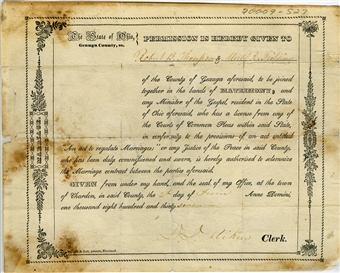 20009-527
The State of Ohio,
Geauga County, ss.
PERMISSION IS HEREBY GIVEN TO
Robert B. Thompson &
of the County of Geauga aforesaid, to be joined
together in the bands of MATRIMONY; and
any Minister of the Gospel, resident in the State
of Ohio aforesaid, who has a license from any
of the Courts of Common Pleas within said State,
in conformity to the provisions of an act entitled
"An act to regulate Marriages;" or any Justice of the Peace in said County,
who has been duly commissioned and sworn, is hereby authorised to solemnize
the Marriage contract between the parties aforesaid.
GIVEN from under my hand, and the seal of my Office, at the town
of Chardon, in said County, the day of Anno Domini,
one thousand eight hundred and thirty
D. D. Aiken Clerk.